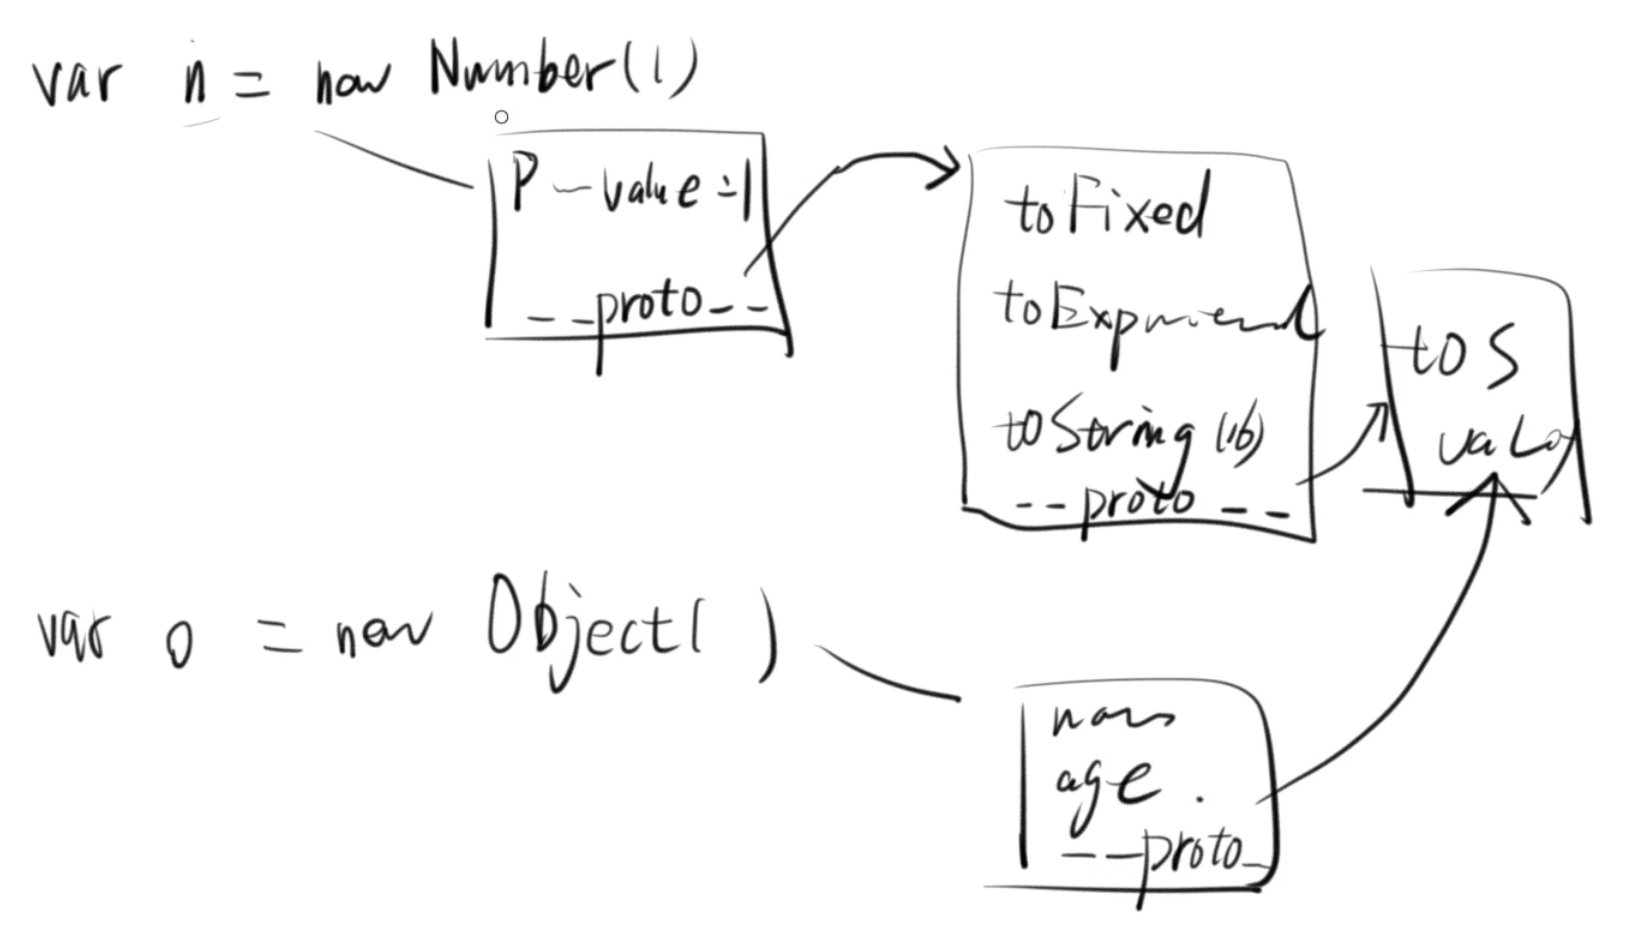 var n = new Number(1)
P - value = 1
__proto__
toFixed
toExponential
toString(16)
__proto__
toS
valo
var o = new Object( )
name
age .
__proto_